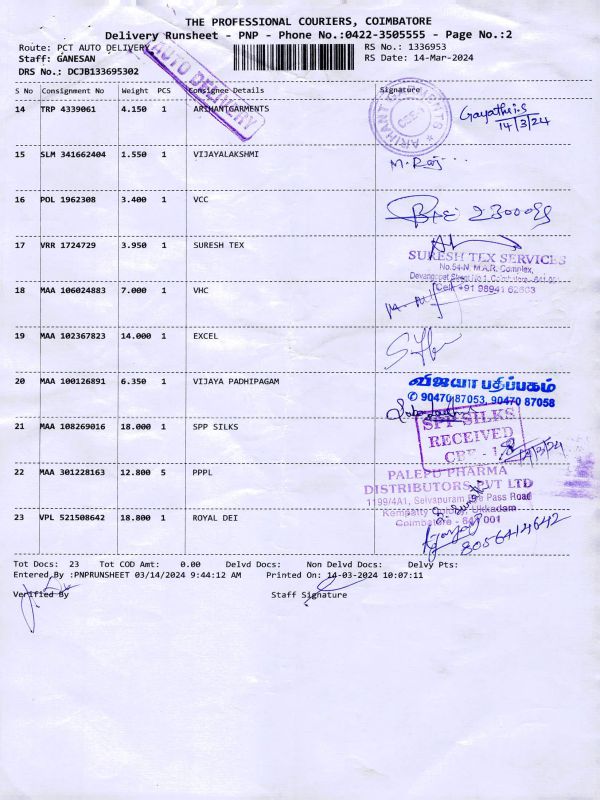 THE PROFESSIONAL COURIERS, COIMBATORE
Delivery Runsheet - PNP - Phone No.:0422-3505555 - Page No.:2
Route: PCT AUTO DELIVERY
RS No.: 1336953
Staff: GANESAN
RS Date: 14-Mar-2024
DRS No.: DCJB133695302
AUTO DELIVERY
S No Consignment No Weight PCS Consignee Details Signature
14 TRP 4339061 4.150 1 ARIHANTGARMENTS
ARIHANT GARMENTS
CBE-1
Gayathri.S
14/3/24
15 SLM 341662404 1.550 1 VIJAYALAKSHMI
M. Raj
16 POL 1962308 3.400 1 VCC
17 VRR 1724729 3.950 1 SURESH TEX
SURESH TEX SERVICES
No.54-N, M.A.R. Complex,
Cell: +91 98941 62603
18 MAA 106024883 7.000 1 VHC
19 MAA 102367823 14.000 1 EXCEL
20 MAA 100126891 6.350 1 VIJAYA PADHIPAGAM
விஜயா பதிப்பகம்
✆ 90470 87053, 90470 87058
21 MAA 108269016 18.000 1 SPP SILKS
SPP SILKS
RECEIVED
CBE - 1
14/3/24
22 MAA 301228163 12.800 5 PPPL
PALEPU PHARMA
DISTRIBUTORS PVT LTD
1199/4A1, Selvapuram Bye Pass Road
Ukkadam
Coimbatore - 641 001
23 VPL 521508642 18.800 1 ROYAL DEI
8056414642
Tot Docs: 23 Tot COD Amt: 0.00 Delvd Docs: Non Delvd Docs: Delvy Pts:
Entered By :PNPRUNSHEET 03/14/2024 9:44:12 AM Printed On: 14-03-2024 10:07:11
Verified By Staff Signature